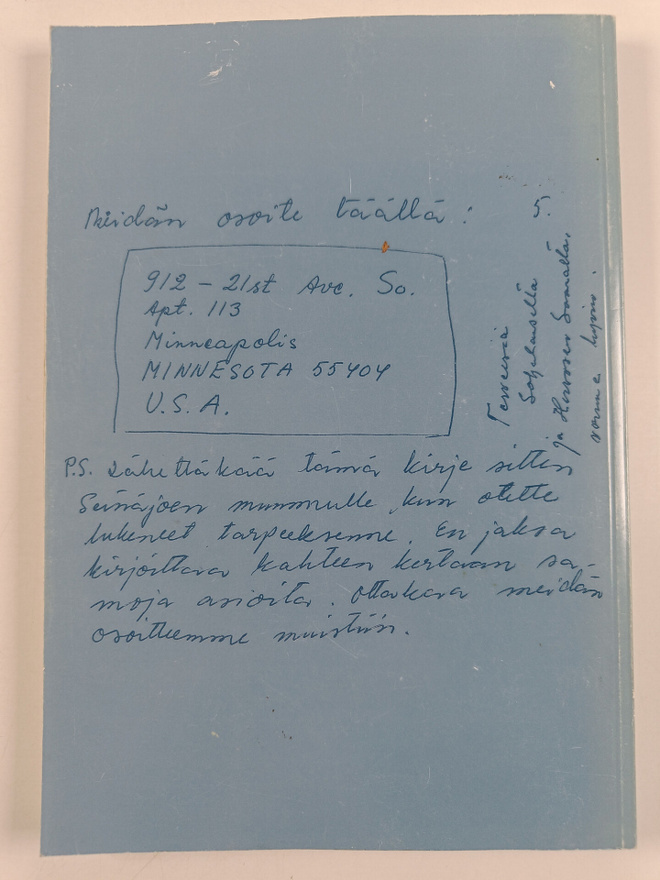 Meidän osoite täällä:
5.
912 - 21st Ave. So.
Apt. 113
Minneapolis
MINNESOTA 55404
U.S.A.
P.S. Lähettäkää tämä kirje sitten
Seinäjoen mummulle kun olette
lukeneet tarpeeksenne. En jaksa
kirjoittaa kahteen kertaan sa-
moja asioita. Ottakaa meidän
osoitteemme muistiin.
Terveisiä
ja